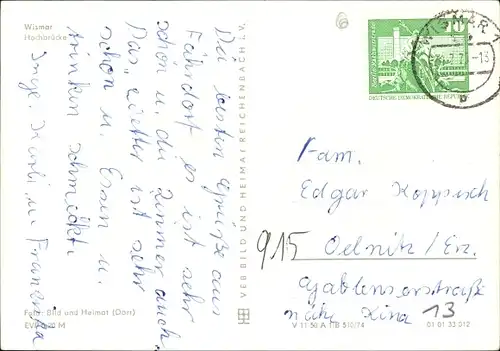 Wismar
Hochbrücke
Die besten Grüße aus
Fährdorf es ist sehr
schön u. die Zimmer auch.
Das Wetter ist sehr
schön u. Essen u.
trinken schmeckt.
Inge, Kurti, u. Franziska
Foto: Bild und Heimat (Dorr)
VEB BILD UND HEIMAT REICHENBACH I. V.
10
DEUTSCHE DEMOKRATISCHE REPUBLIK
WISMAR 1
-13
b
Fam.
Edgar Koppisch
915 Oelnitz/Erz.
Gablenzerstraße
nähe Kino 13
V 11 50 A 1/B 510/74
01 01 33 012